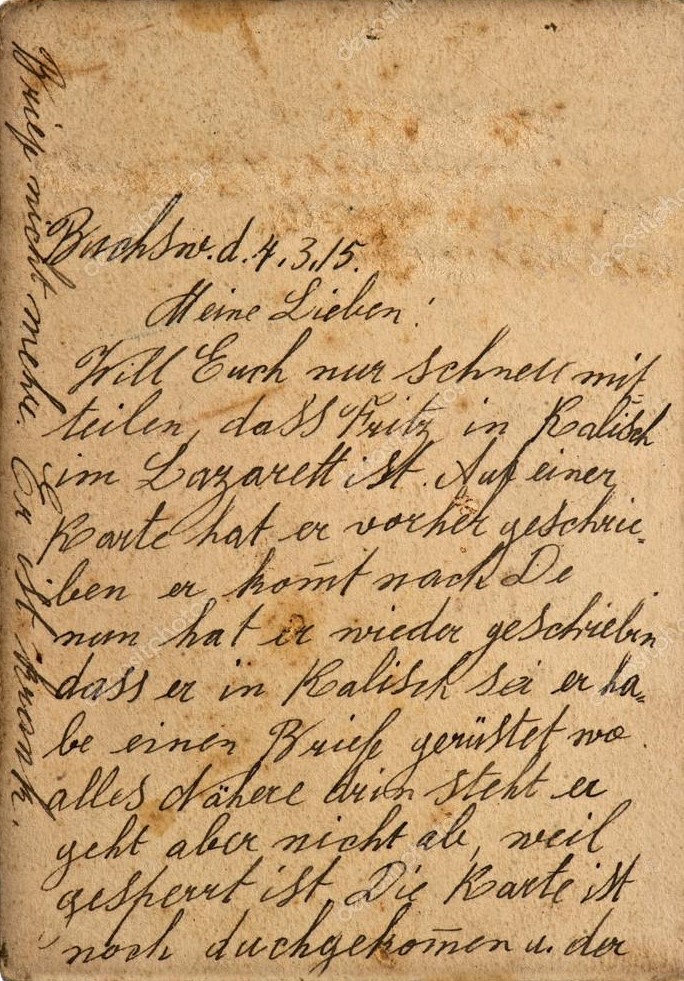 Buchsw. d. 4.3.15.
Meine Lieben!
Will Euch nur schnell mit
teilen, dass Fritz in Kalisch
im Lazarett ist. Auf einer
Karte hat er vorher geschrie=
ben er kom̄t nach De
nun hat er wieder geschrieben
dass er in Kalisch sei er ha=
be einen Briefe gerüstet wo
alles Nähere drin steht er
geht aber nicht ab, weil
gesperrt ist. Die Karte ist
noch duchgekom̄en u. der
Brief nicht mehr. Er ist krank.